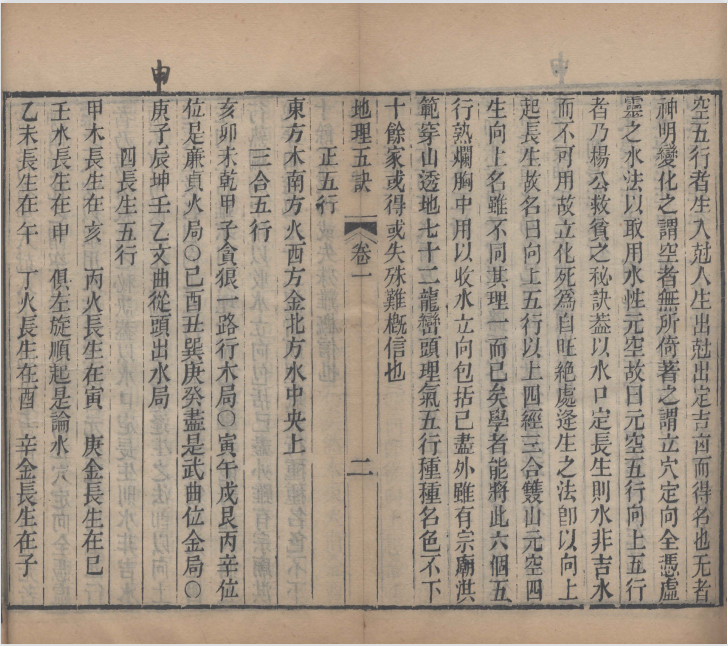 申
空五行者生入尅入生出尅出定吉凶而得名也无者
神明變化之謂空者無所倚著之謂立穴定向全憑虛
靈之水法以取用水性元空故曰元空五行向上五行
者乃楊公救貧之秘訣葢以水口定長生則水非吉水
而不可用故立化死爲自旺絶處逢生之法卽以向上
起長生故名曰向上五行以上四經三合雙山元空四
生向上名雖不同其理一而已矣學者能將此六個五
行熟爛胸中用以收水立向包括已盡外雖有宗廟洪
範穿山透地七十二龍巒頭理氣五行種種名色不下
十餘家或得或失殊難概信也
地理五訣 卷一 二
正五行
東方木南方火西方金北方水中央土
三合五行
亥卯未乾甲丁貪狼一路行木局○寅午戌艮丙辛位
位是廉貞火局○巳酉丑巽庚癸盡是武曲位金局○
庚子辰坤壬乙文曲從頭出水局
四長生五行
甲木長生在亥 丙火長生在寅 庚金長生在巳
壬水長生在申 俱左旋順起是論水
乙木長生在午 丁火長生在酉 辛金長生在子